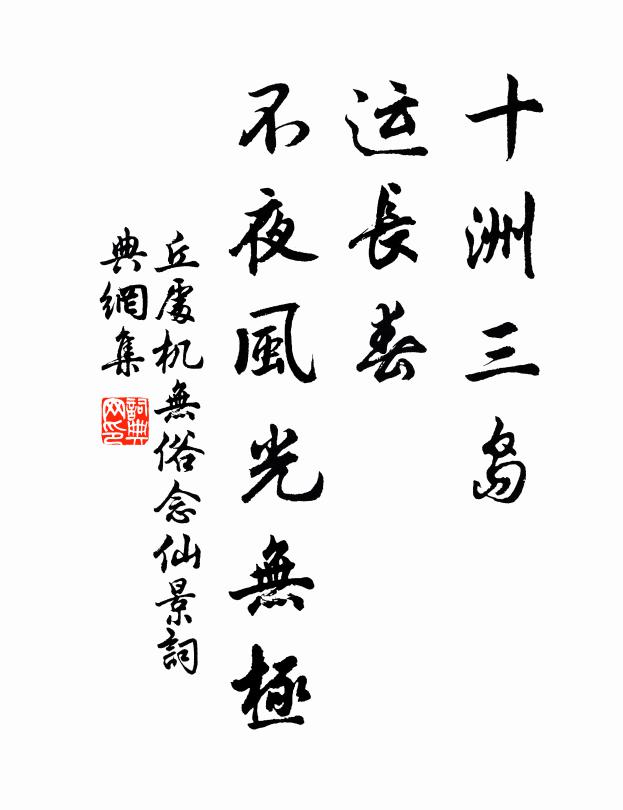 十洲三岛
运長春
不夜風光無極
丘處机無俗念仙景詞
典網集
詞典網印